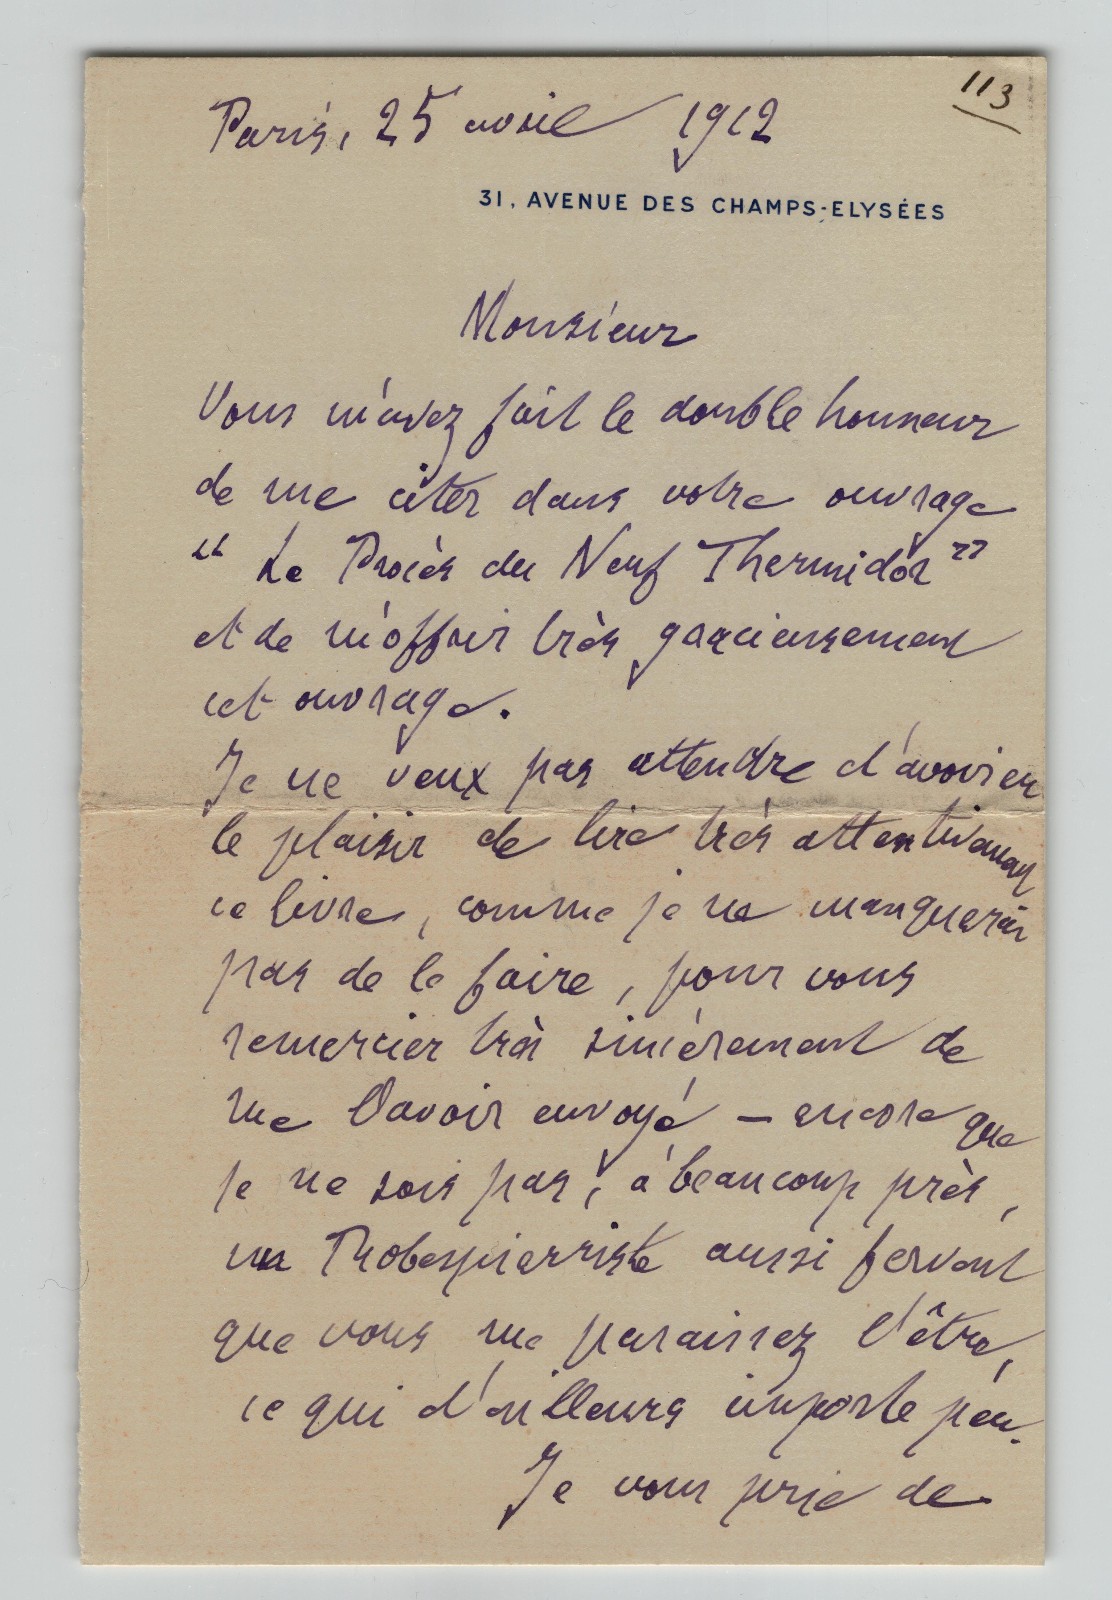 113
Paris, 25 avril 1912
31, AVENUE DES CHAMPS-ELYSÉES
Monsieur
Vous m'avez fait le double honneur
de me citer dans votre ouvrage
“ Le Procès du Neuf Thermidor ”
et de m'offrir très gracieusement
cet ouvrage.
Je ne veux pas attendre d'avoir eu
le plaisir de lire très attentivement
ce livre, comme je ne manquerai
pas de le faire, pour vous
remercier très sincèrement de
me l'avoir envoyé – encore que
je ne sois pas, à beaucoup près,
un Robespierriste aussi fervent
que vous me paraissez l'être,
ce qui d'ailleurs importe peu.
Je vous prie de